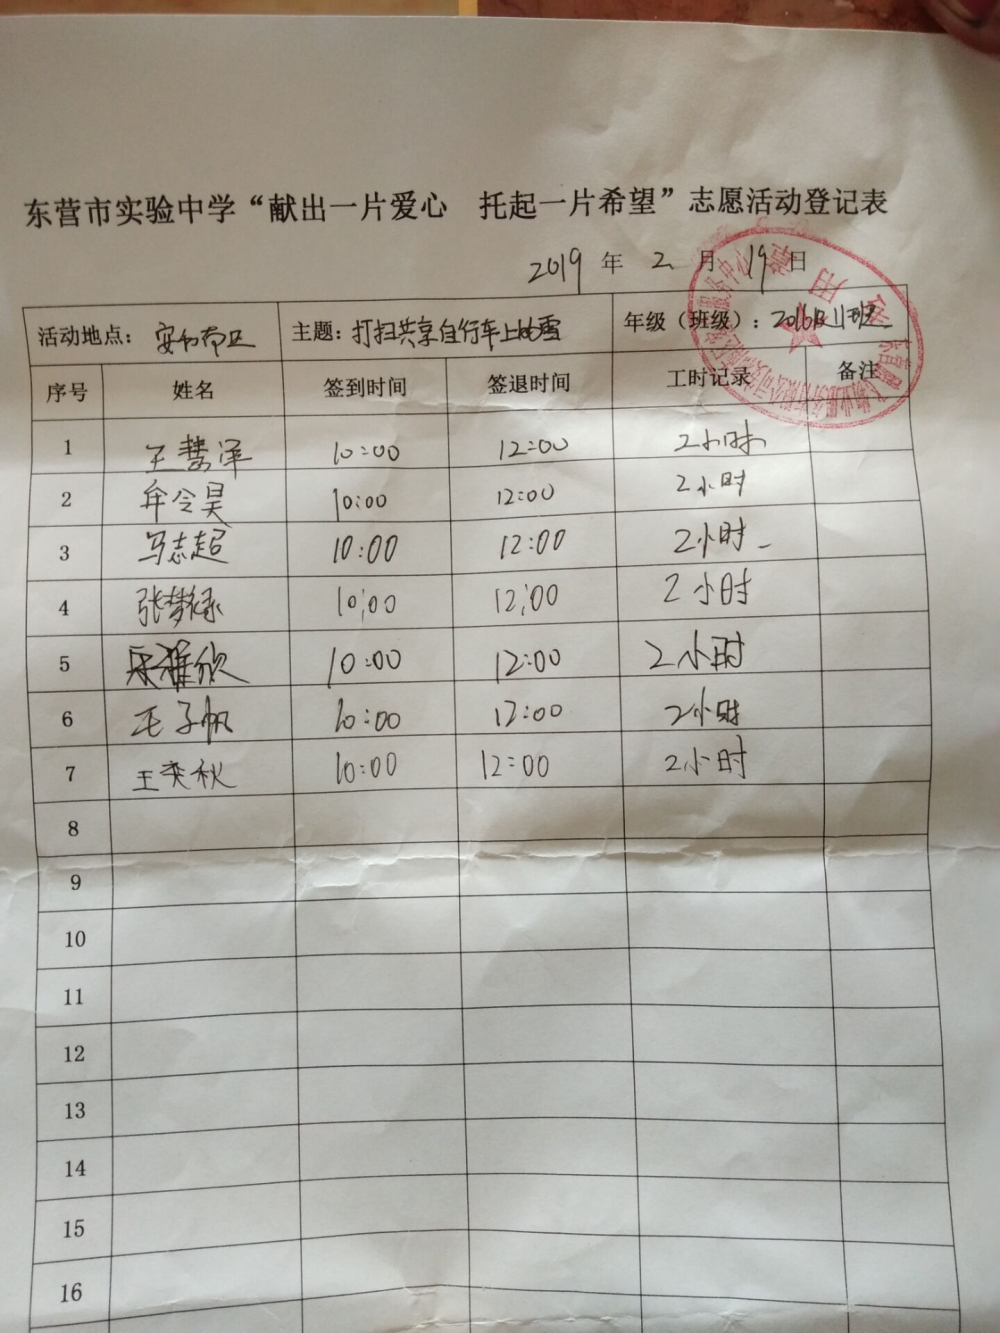 东营市实验中学“献出一片爱心 托起一片希望”志愿活动登记表
2019 年 2 月 19 日
活动地点: 安和南区 主题: 打扫共享自行车上的雪 年级（班级）: 2016级11班
序号 姓名 签到时间 签退时间 工时记录 备注
1 王慧泽 10:00 12:00 2小时
2 牟令昊 10:00 12:00 2小时
3 马志超 10:00 12:00 2小时
4 张梦禄 10:00 12:00 2小时
5 雅欣 10:00 12:00 2小时
6 毛子帆 10:00 12:00 2小时
7 王奕秋 10:00 12:00 2小时
8
9
10
11
12
13
14
15
16